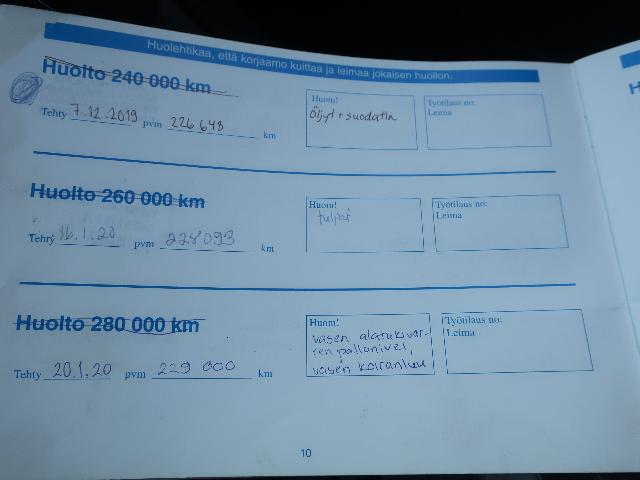 Huolehtikaa, että korjaamo kuittaa ja leimaa jokaisen huollon.
Huolto 240 000 km
Tehty 7.12.2019 pvm 226 648 km
Huom!
Öljyt + suodatin
Työtilaus no:
Leima
Huolto 260 000 km
Tehty 16.1.20 pvm 228093 km
Huom!
tulpat
Työtilaus no:
Leima
Huolto 280 000 km
Tehty 20.1.20 pvm 229 000 km
Huom!
vasen alatukivar-
ren pallonivel,
vasen koiranluu
Työtilaus no:
Leima
10
H